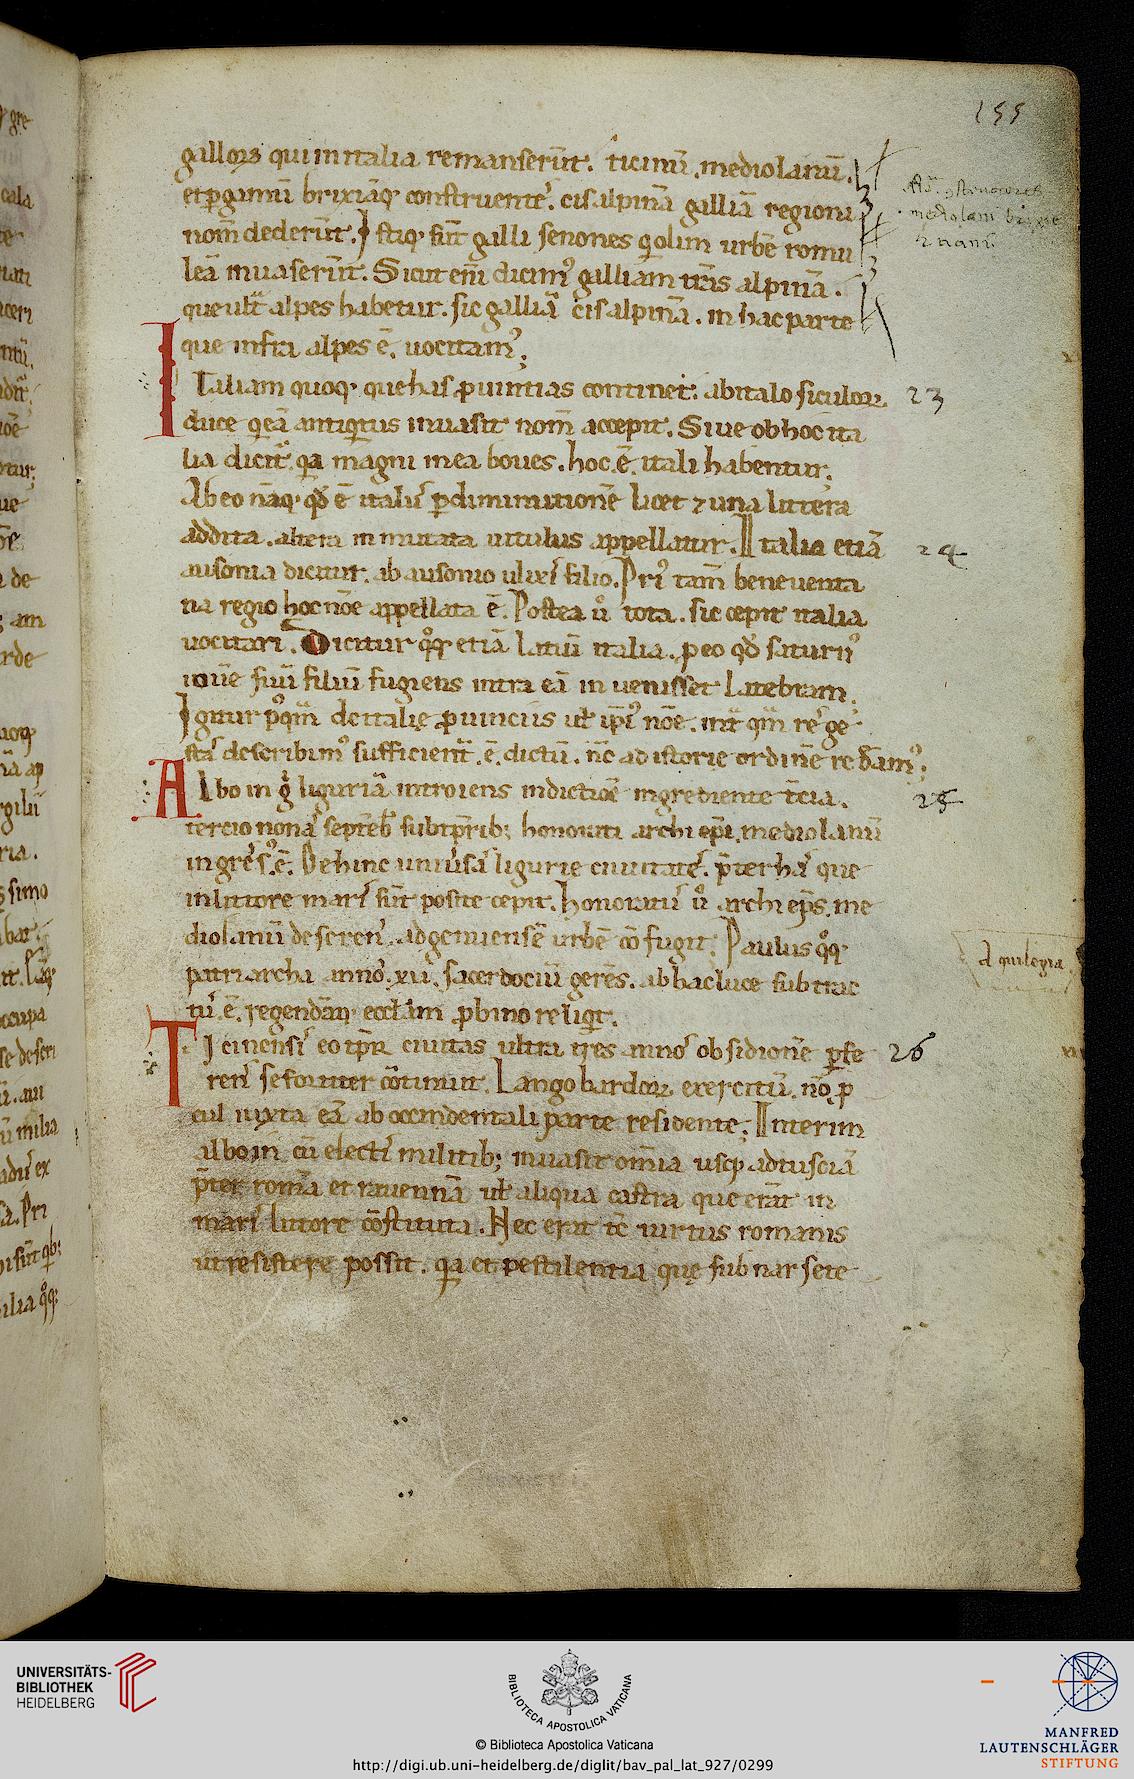 155
galloꝝ qui in italia remanserūt. ticinū. mediolanū.
et ꝑgamū brixiāq; construentes. cisalpinā galliā regioni
nom̄ dederūt. Istiq; sūt galli senones q̇ olim urbē romu
leā inuaserūt. Sicut eni dicimꝰ galliam trās alpinā.
que ult̄ alpes habetur. sic galliā cisalpinā. in hac parte
que infra alpes ē. uocitamꝰ.
Italiam quoq; que has ꝓuintias continet. ab italo siculoꝝ
duce q eā antiqtus inuasit nom̄ accepit. Siue ob hoc ita
lia dicit̄ qa magni in ea boues. hoc. ē. itali habentur.
Ab eo nāq; qđ ē italus ꝑ diminutionē licet ⁊ una littera
addita. altera in mutata uitulus appellatur. Italia etiā
ausonia dicitur. ab ausonio ulixis filio. Pri tam̄ beneuenta
na regio hoc nōe appellata ē. Postea ů tota. sic cepit italia
uocitari. Dicitur qq; etiā latiū italia. ꝑ eo qđ saturnꝰ
iouē suū filiū fugiens intra eā inuenisset latebram.
Igitur pꝰqm̄ de italię ꝓuinciis ut ipsiꝰ nōe. int̄ qm̄ res ge
stas describimꝰ sufficient̄. ē. dictū. nc̄ ad istorie ordinē redeamꝰ.
Albo in ġ liguriā introiens indictiōe ingrediente t̄cia.
tercio nonas septēb subtp̄rib; honorati archi epi. mediolanū
ingresꝰ. ē. Dehinc uniuersas ligurie ciuitates. p̄ter has que
in littore maris sūt posite cepit. honoratus ů archi eps. me
dioľanū deserens. ad genuensē urbē cōfugit. Paulus qq;
patriarcha annos. xii. sacerdociū gerēs. ab hac luce subtrac
tus. ē. regendāq; eccłam ꝓbino reliqt.
Ticinensis eo tp̄r ciuitas ultra tres annos obsidionē ꝑfe
rens se fortiter cōtinuit. Langobardoꝝ exercitū. nō. ꝓ
cul iuxta eā ab occidentali parte residente. Interim
alboin cū electis militib; inuasit om̄ia usq; ad tusciā
p̄ter romā et rauennā ut aliqua castra que erāt in
maris littore cōstituta. Nec erat tc̄ uirtus romanis
ut resistere possit. qa et pestilentia quę sub narsete
mediolani
23
24
25
Aquilegia
26
UNIVERSITÄTS-
BIBLIOTHEK
HEIDELBERG
BIBLIOTECA APOSTOLICA VATICANA
© Biblioteca Apostolica Vaticana
http://digi.ub.uni-heidelberg.de/diglit/bav_pal_lat_927/0299
MANFRED
LAUTENSCHLÄGER
STIFTUNG